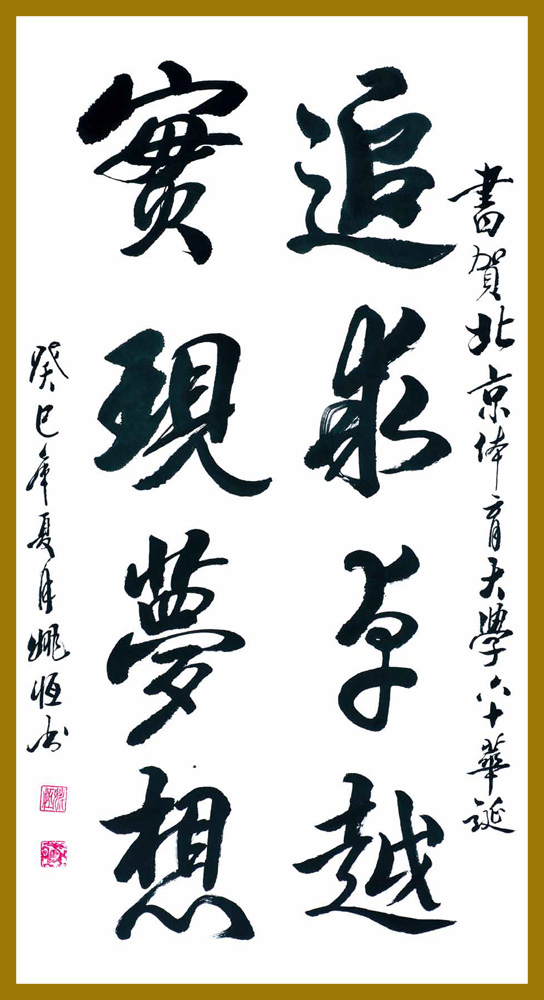 書賀北京体育大學六十華誕
追求卓越
實現夢想
癸巳年夏月姚恒書